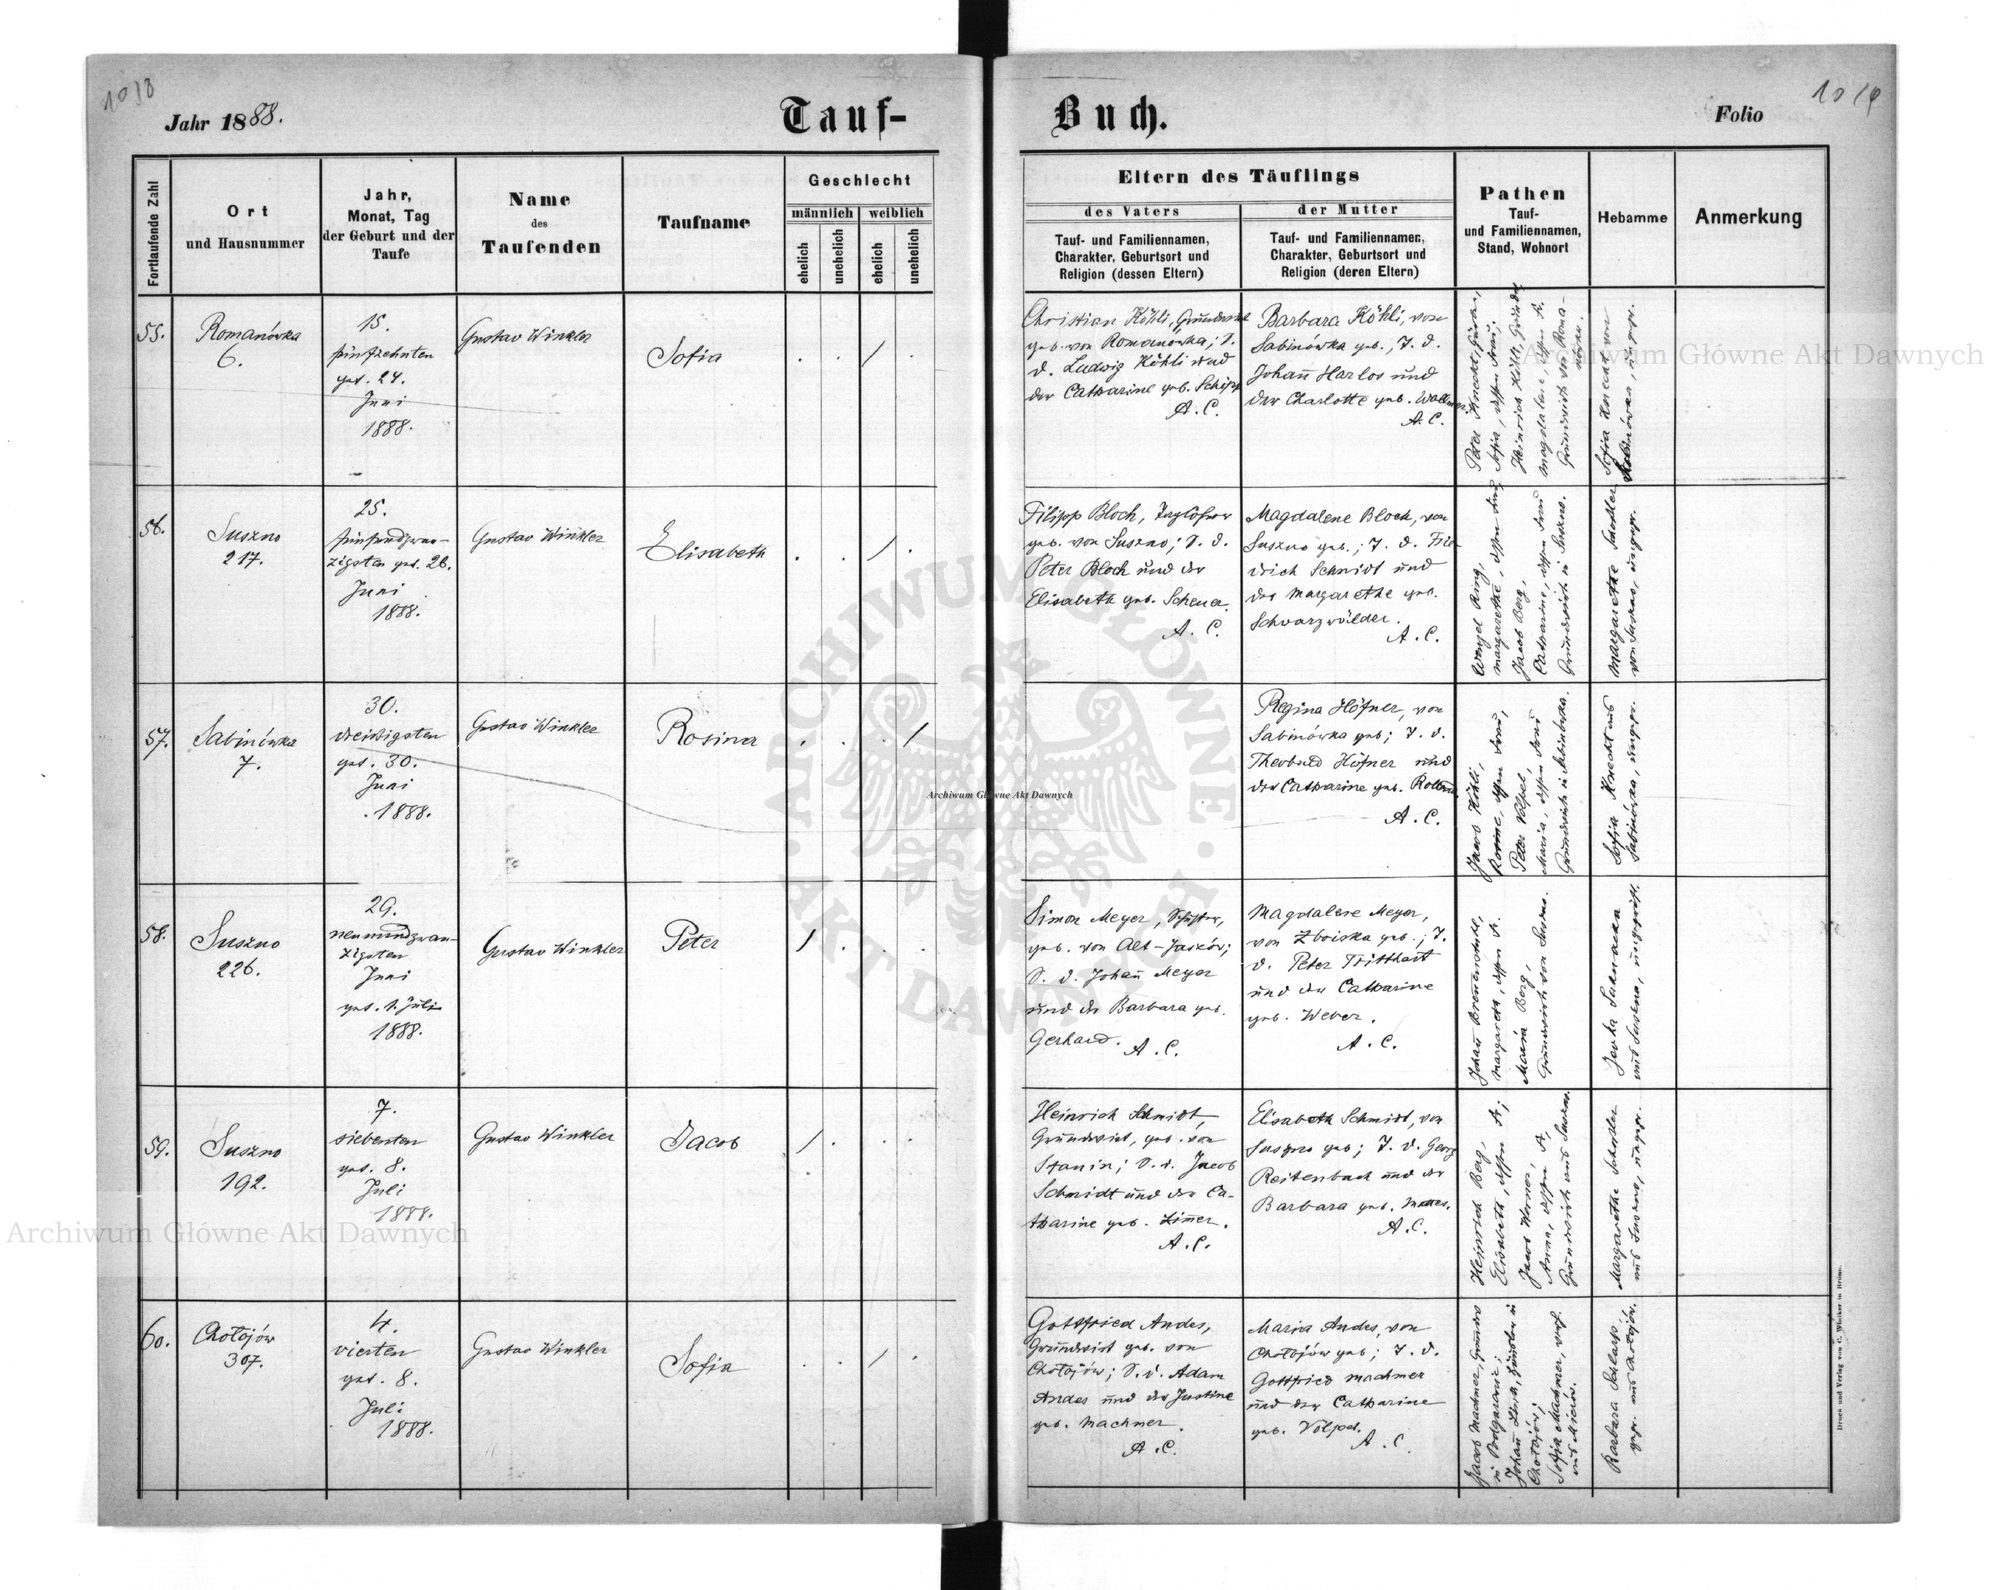 1018
Jahr 1888.
Tauf-
Buch.
Folio
1019
Fortlaufende Zahl
Ort
und Hausnummer
Jahr,
Monat, Tag
der Geburt und der
Taufe
Name
des
Taufenden
Taufname
Geschlecht
männlich
weiblich
ehelich
unehelich
ehelich
unehelich
Eltern des Täuflings
des Vaters
der Mutter
Tauf- und Familiennamen,
Charakter, Geburtsort und
Religion (dessen Eltern)
Tauf- und Familiennamen,
Charakter, Geburtsort und
Religion (deren Eltern)
Pathen
Tauf-
und Familiennamen,
Stand, Wohnort
Hebamme
Anmerkung
55.
Romanówka
6.
15.
fünfzehnten
get. 24.
Juni
1888.
Gustav Winkler
Sofia
Christian Köhli, Grundwirt
geb. von Romanówka; S.
d. Ludwig Köhli und
der Catharine geb. Schipp
A. C.
Barbara Köhli, von
Sabinówka geb., T. d.
Johañ Harlos und
der Charlotte geb. Wollmer.
A. C.
Peter Knecht,
Sofia, dessen Frau;
Heinrich Köhli,
Magdalene, dessen Fr.
Grundwirth von Roma-
nówka.
Sofia Knecht von
Sabinówka, ungepr.
56.
Suszno
217.
25.
fünfundzwan-
zigsten get. 26.
Juni
1888.
Gustav Winkler
Elisabeth
Filipp Bloch, Taglöhner
geb. von Suszno; S. d.
Peter Bloch und der
Elisabeth geb. Scheuer.
A. C.
Magdalene Bloch, von
Suszno geb.; T. d. Frie-
drich Schmidt und
der Margarethe geb.
Schwarzwälder.
A. C.
Wenzel Ring,
Margarethe, dessen Frau
Jacob Berg,
Catharine, dessen Frau
Grundwirth in Suszno.
Margarethe Schedler
von Suszno, ungepr.
57.
Sabinówka
7.
30.
dreißigsten
get. 30.
Juni
1888.
Gustav Winkler
Rosina
Regina Höfner, von
Sabinówka geb; T. d.
Theobald Höfner und
der Catharine geb.
A. C.
Jacob Köhli,
Rosine, dessen Frau,
Peter Völpel,
Maria, dessen Frau
Grundwirth in Sabinówka.
Sofia Knecht aus
Sabinówka, ungepr.
58.
Suszno
226.
29.
neunundzwan-
zigsten
Juni
get. 1. Juli
1888.
Gustav Winkler
Peter
Simon Meyer, Schuster,
geb. von Alt-Jażów;
S. d. Johañ Meyer
und der Barbara geb.
Gerhard.
A. C.
Magdalene Meyer,
von Zboiska geb.; T.
d. Peter Tritthart
und der Catharine
geb. Weber.
A. C.
Johañ Brennenstuhl,
Margareth, dessen Fr.
Maria Berg,
Grundwirth von Suszno.
aus Suszno, ungeprüft.
59.
Suszno
192.
7.
siebenten
get. 8.
Juli
1888.
Gustav Winkler
Jacob
Heinrich Schmidt,
Grundwirt, geb. von
Stanin; S. d. Jacob
Schmidt und der Ca-
tharine geb. Zimer.
A. C.
Elisabeth Schmidt, von
Suszno geb; T. d. Georg
Reitenbach und der
Barbara geb. Mattes.
A. C.
Heinrich Berg,
Elisabeth, dessen Fr;
Jacob Korner,
Anna, dessen Fr,
Grundwirth aus Suszno.
Margarethe Schedler
aus Suszno, ungepr.
60.
Chołojów
307.
4.
vierten
get. 8.
Juli
1888.
Gustav Winkler
Sofia
Gottfried Andes,
Grundwirt geb. von
Chołojów; S. d. Adam
Andes und der Justine
geb. Machmer.
A. C.
Maria Andes, von
Chołojów geb; T. d.
Gottfried Machmer
und der Catharine
geb. Völpel.
A. C.
Jacob Machmer, Grundw
in Podgaranie;
Johañ
Chołojów;
Sofia Machmer,
Barbara Schlarp
gepr. aus Chołojów.
Druck und Verlag von C. Winiker in Brünn.
Archiwum Główne Akt Dawnych
Archiwum Główne Akt Dawnych
Archiwum Główne Akt Dawnych
ARCHIWUM GŁÓWNE
AKT DAWNYCH